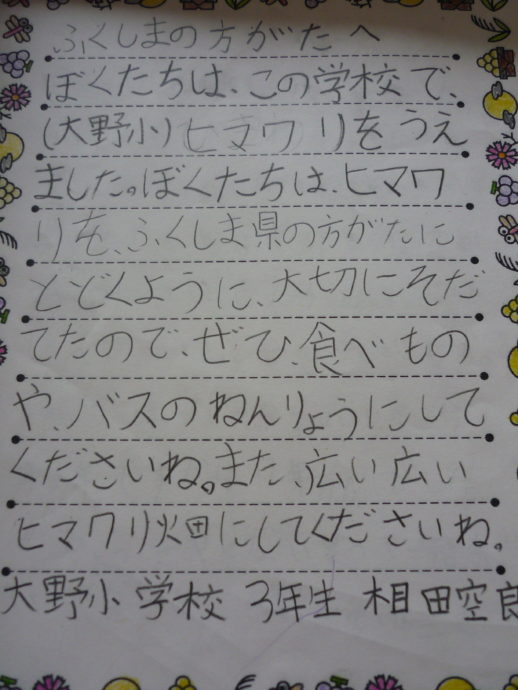 ふくしまの方がたへ
ぼくたちは、この学校で、
(大野小)ヒマワリをうえ
ました。ぼくたちは、ヒマワ
リを、ふくしま県の方がたに
とどくように、大切にそだ
てたので、ぜひ、食べもの
や、バスのねんりょうにして
くださいね。また、広い広い
ヒマワリ畑にしてくださいね。
大野小学校 3年生 相田空良